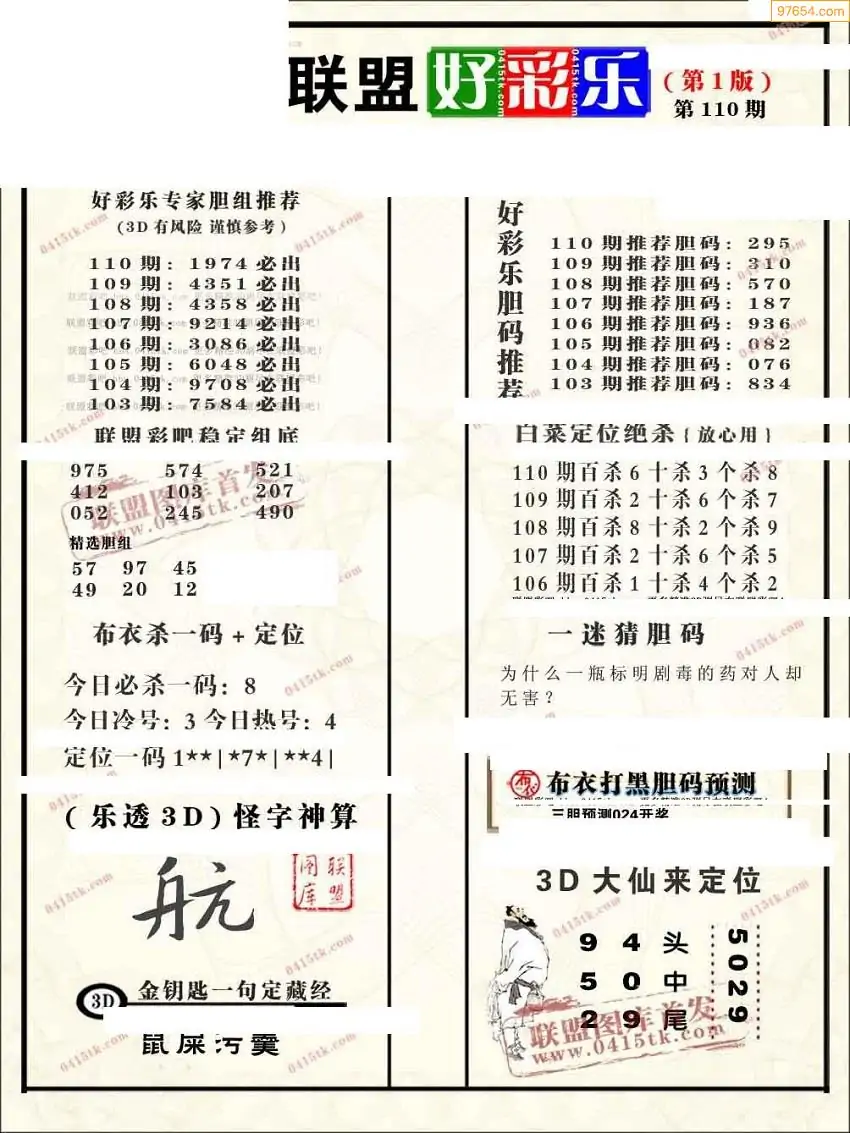 97654.com
联盟好彩乐
(第1版)
第110期
好彩乐专家胆组推荐
(3D有风险 谨慎参考)
110期: 1974必出
109期: 4351必出
108期: 4358必出
107期: 9214必出
106期: 3086必出
105期: 6048必出
104期: 9708必出
103期: 7584必出
联盟彩吧稳定组底
975 574 521
412 103 207
052 245 490
精选胆组
57 97 45
49 20 12
布衣杀一码+定位
今日必杀一码: 8
今日冷号: 3 今日热号: 4
定位一码1**|*7*|**4|
(乐透3D)怪字神算
航
联盟图库
3D 金钥匙一句定藏经
鼠屎污羹
好彩乐胆码推荐
110期推荐胆码: 295
109期推荐胆码: 310
108期推荐胆码: 570
107期推荐胆码: 187
106期推荐胆码: 936
105期推荐胆码: 082
104期推荐胆码: 076
103期推荐胆码: 834
白菜定位绝杀{放心用}
110期百杀6十杀3个杀8
109期百杀2十杀6个杀7
108期百杀8十杀2个杀9
107期百杀2十杀6个杀5
106期百杀1十杀4个杀2
一迷猜胆码
为什么一瓶标明剧毒的药对人却
无害?
布衣 布衣打黑胆码预测
三胆预测024开奖
3D大仙来定位
9 4 头
5 0 中
2 9 尾
5029
联盟图库首发
www.0415tk.com